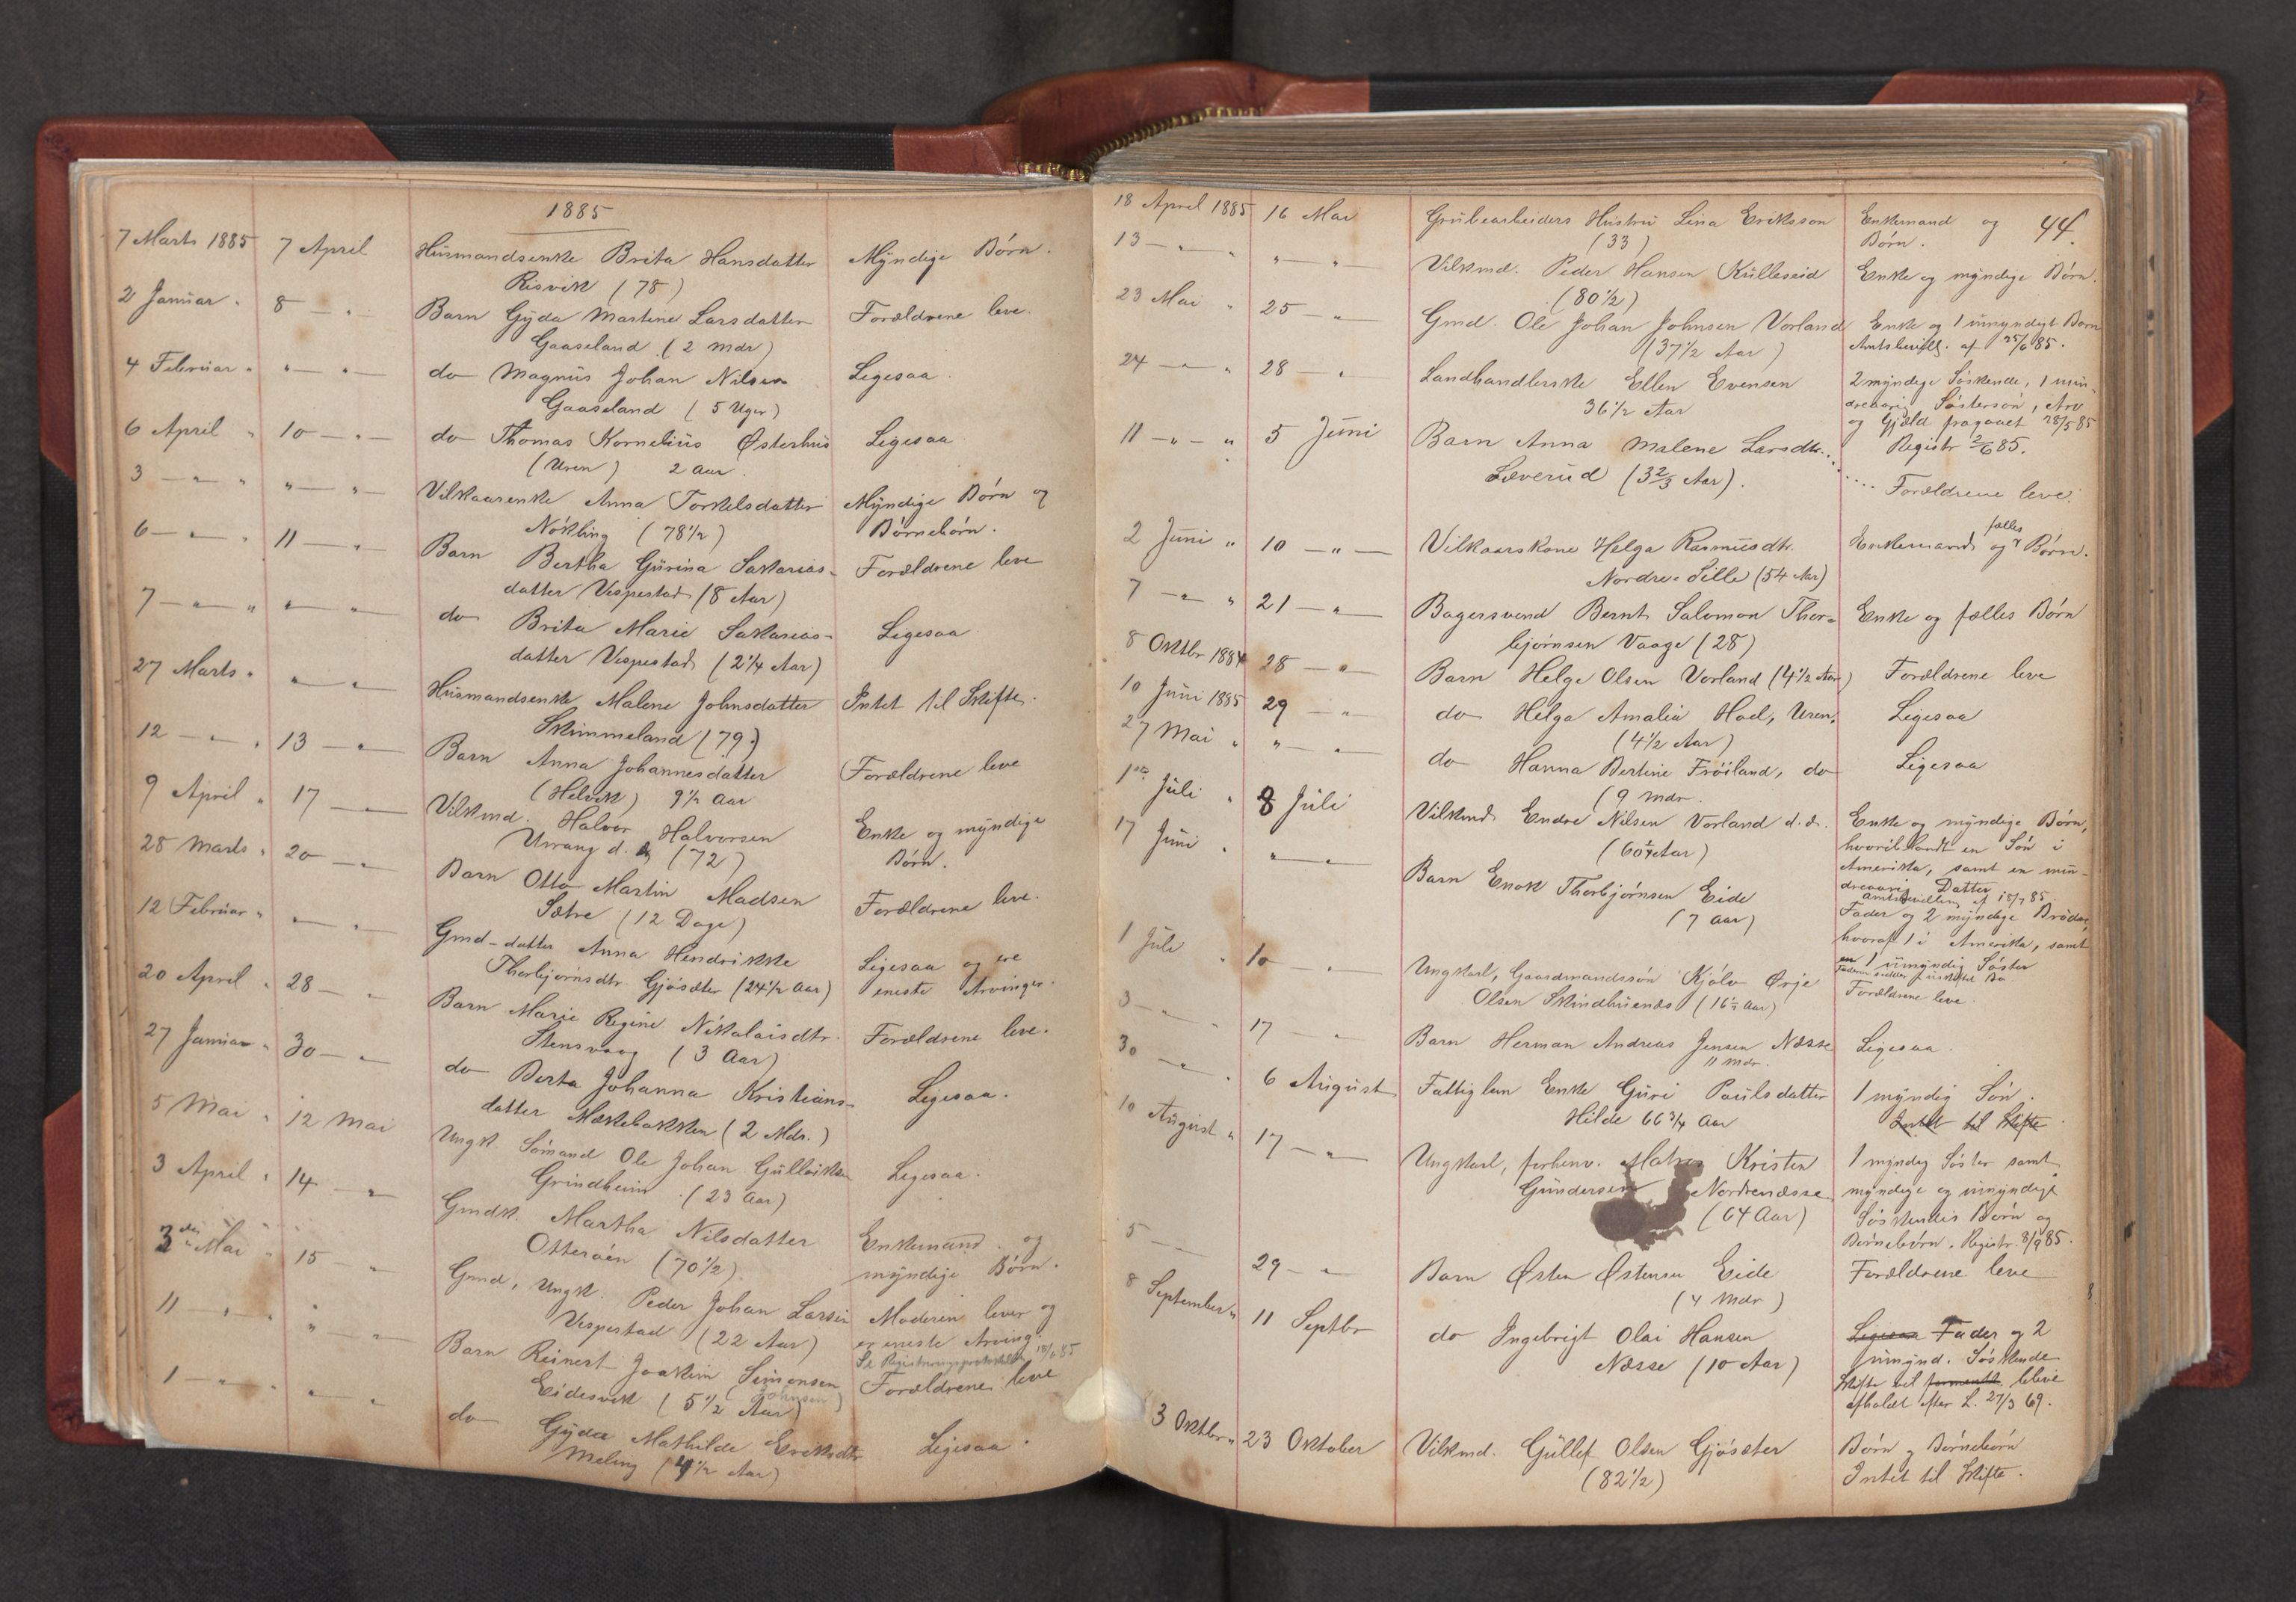 1885
7 Marts 1885 7 April Husmandsenke Brita Hansdatter Myndige Børn.
Risvik (78)
2 Januar " 8 — " — Barn Gyda Martine Larsdatter Forældrene leve.
Gaaseland (2 Mdr)
4 Februar " " — " — do Magnus Johan Nilsen Ligesaa
Gaaseland (5 Uger)
6 April " 10 — " — do Thomas Kornelius Østerhus Ligesaa
(Uren) 2 Aar.
3 — " — " " — " — Vilkaarsenke Anna Torkelsdatter Myndige Børn og
Nökling (78½) Børnebørn.
6 — " — " 11 — " — Barn Bertha Gurina Sakarias- Forældrene leve
datter Vespestad (8 Aar)
7 — " — " " — " — do Brita Marie Sakarias- Ligesaa
datter Vespestad (2¼ Aar)
27 Marts " " — " — Husmandsenke Malene Johnsdatter Intet til Skifte.
Skimmeland (79)
12 — " — " 13 — " — Barn Anna Johannesdatter Forældrene leve
(Helvik) 9½ Aar
9 April " 17 — " — Vilkmd. Halvor Halvorsen Enke og myndige
Urang d. (72) Børn.
28 Marts " 20 — " — Barn Otto Martin Madsen Forældrene leve.
Sætre (12 Dage)
12 Februar " " — " — Gmd-datter Anna Hendrikke Ligesaa og ere
Thorbjørnsdtr. Gjøsæter (24½ Aar) eneste Arvinger.
20 April " 28 — " — Barn Marie Regine Nikolaisdtr. Forældrene leve.
Stensvaag (3 Aar)
27 Januar " 30 — " — do Berta Johanna Kristians- Ligesaa.
datter Mækebakken (2 Mdr.)
5 Mai " 12 Mai Ungk. Sømand Ole Johan Gulleiksen Ligesaa.
Grindheim (23 Aar)
3 April " 14 — " — Gmdk. Martha Nilsdatter Enkemand og
Otteraaen (70½) myndige Børn.
3die Mai " 15 — " — Gmd, Ungk. Peder Johan Larsen Moderen lever og
Vespestad (22 Aar) er eneste Arving.
Se Registreringsprotokollen 18/6 85
11 — " — " " — " — Barn Reinert Joakim Simonsen Forældrene leve
Eidesvik (5½ Aar) (Johnsen)
1 — " — " " — " — do Gyda Mathilde Eriksdtr Ligesaa.
Meling (4½ Aar)
44.
18 April 1885 16 Mai Grubearbeiders Hustru Lina Eriksson Enkemand og
(33) Børn.
13 — " — " " — " Vilkmd. Peder Hansen Kulleseid Enke og myndige Børn.
(80½)
23 Mai " 25 — " — Gmd. Ole Johan Johnsen Vorland Enke og 1 umyndigt Barn
(37½ Aar) Amtsbevillg. af 25/6 85.
24 — " — " 28 — " — Landhandlerske Ellen Evensen 2 myndige Søskende, 1 min-
36½ Aar dreaarig Søstersøn, Arv
og Gjæld fragaaet 28/5 85
Registr 2/6 85.
11 — " — " 5 Juni Barn Anna Malene Larsdtr. Forældrene leve.
Læverud (3⅔ Aar).
2 Juni " 10 — " — Vilkaarskone Helga Rasmusdtr. Enkemand og fælles Børn.
Nordre-Sille (54 Aar)
7 — " — " 21 — " — Bagersvend Bernt Salomon Thor- Enke og fælles Børn
bjørnsen Vaage (28)
8 Oktbr 1884 28 — " — Barn Helge Olsen Vorland (4½ Aar) Forældrene leve
10 Juni 1885 29 — " — do Helga Amalia Hoel, Uren, Ligesaa
(4½ Aar)
27 Mai " " — " — do Hanna Bertine Frøiland, do Ligesaa
(9 Mdr.
1ste Juli " 8 Juli Vilkmd Endre Nilsen Vorland d.æ. Enke og myndige Børn,
(60¼ Aar) hvoriblandt en Søn i
Amerika, samt en min-
dreaarig Datter
Amtsbevilling af 15/7 85
17 Juni " " — " — Barn Enok Thorbjørnsen Eide Fader og 2 myndige Brødre,
(7 Aar) hvoraf 1 i Amerika, samt
en 1 umyndig Søster
Faderen sidder i uskiftet Bo
1 Juli " 10 — " — Ungkarl, Gaardmandssøn Kjølv Ørje Forældrene leve.
Olsen Skindhuenæs (16½ Aar)
3 — " — " 17 — " — Barn Herman Andreas Jensen Næsse Ligesaa.
11 Mdr.
30 — " — " 6 August Fattiglem Enke Guri Paulsdatter 1 myndig Søn.
Hilde 66¾ Aar Intet til Skifte
10 August " 17 — " — Ungkarl, forhenv. Matros Kristen 1 myndig Søster samt
Gundersen Nordrenæsse myndige og umyndige
(64 Aar) Søskendes Børn og
Børnebørn. Registr. 8/9 85.
5 — " — 29 — " — Barn Østen Østensen Eide Forældrene leve
(4 Mdr)
8 September " 11 Septbr do Ingebrigt Olai Hansen Ligesaa Fader og 2
Næsse (10 Aar) umynd. Søskende
Skifte vil formentl. blive
afholdt efter L. 27/3 69.
3 Oktbr " 23 Oktober Vilkmd. Gullef Olsen Gjøsæter Børn og Børnebørn
(82½) Intet til Skifte.